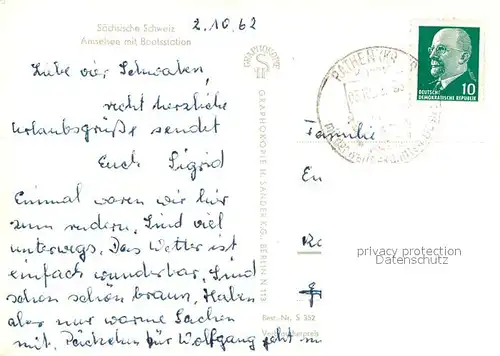 Sächsische Schweiz
Amselsee mit Bootsstation
2.10.62
Liebe vier Schwaben,
recht herzliche
Urlaubsgrüße sendet
Euch Sigrid
Einmal waren wir hier
zum rudern. Sind viel
unterwegs. Das Wetter ist
einfach wunderbar. Sind
schon schön braun. Haben
aber nur warme Sachen
mit. Päckchen für Wolfgang geht
GRAPHOKOPIE H. SANDER KG. BERLIN N 113
Best.-Nr. S 352
RATHEN
10
DEUTSCHE
DEMOKRATISCHE REPUBLIK
Familie
privacy protection
Datenschutz